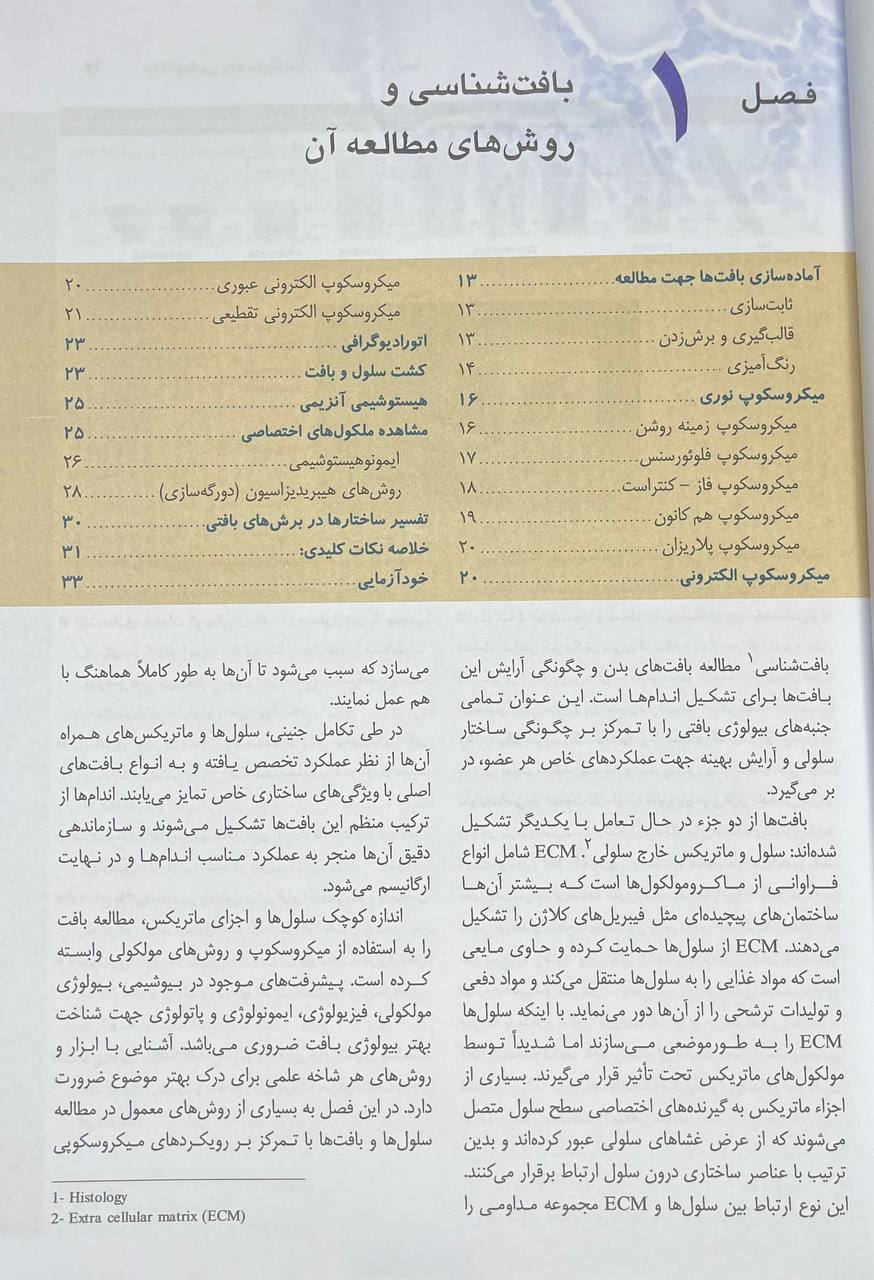 فصل ۱
بافت‌شناسی و
روش‌های مطالعه آن
آماده‌سازی بافت‌ها جهت مطالعه ..................... ۱۳
ثابت‌سازی ..................... ۱۳
قالب‌گیری و برش‌زدن ..................... ۱۳
رنگ‌آمیزی ..................... ۱۴
میکروسکوپ نوری ..................... ۱۶
میکروسکوپ زمینه روشن ..................... ۱۶
میکروسکوپ فلوئورسنس ..................... ۱۷
میکروسکوپ فاز – کنتراست ..................... ۱۸
میکروسکوپ هم کانون ..................... ۱۹
میکروسکوپ پلاریزان ..................... ۲۰
میکروسکوپ الکترونی ..................... ۲۰
میکروسکوپ الکترونی عبوری ..................... ۲۰
میکروسکوپ الکترونی تقطیعی ..................... ۲۱
اتورادیوگرافی ..................... ۲۳
کشت سلول و بافت ..................... ۲۳
هیستوشیمی آنزیمی ..................... ۲۵
مشاهده ملکول‌های اختصاصی ..................... ۲۵
ایمونوهیستوشیمی ..................... ۲۶
روش‌های هیبریدیزاسیون (دورگه‌سازی) ............ ۲۸
تفسیر ساختارها در برش‌های بافتی ..................... ۳۰
خلاصه نکات کلیدی: ..................... ۳۱
خودآزمایی ..................... ۳۳
بافت‌شناسی۱ مطالعه بافت‌های بدن و چگونگی آرایش این
بافت‌ها برای تشکیل اندام‌ها است. این عنوان تمامی
جنبه‌های بیولوژی بافتی را با تمرکز بر چگونگی ساختار
سلولی و آرایش بهینه جهت عملکردهای خاص هر عضو، در
بر می‌گیرد.
بافت‌ها از دو جزء در حال تعامل با یکدیگر تشکیل
شده‌اند: سلول و ماتریکس خارج سلولی۲. ECM شامل انواع
فراوانی از ماکرومولکول‌ها است که بیشتر آن‌ها
ساختمان‌های پیچیده‌ای مثل فیبریل‌های کلاژن را تشکیل
می‌دهند. ECM از سلول‌ها حمایت کرده و حاوی مایعی
است که مواد غذایی را به سلول‌ها منتقل می‌کند و مواد دفعی
و تولیدات ترشحی را از آن‌ها دور می‌نماید. با اینکه سلول‌ها
ECM را به طورموضعی می‌سازند اما شدیداً توسط
مولکول‌های ماتریکس تحت تأثیر قرار می‌گیرند. بسیاری از
اجزاء ماتریکس به گیرنده‌های اختصاصی سطح سلول متصل
می‌شوند که از عرض غشاهای سلولی عبور کرده‌اند و بدین
ترتیب با عناصر ساختاری درون سلول ارتباط برقرار می‌کنند.
این نوع ارتباط بین سلول‌ها و ECM مجموعه مداومی را
می‌سازد که سبب می‌شود تا آن‌ها به طور کاملاً هماهنگ با
هم عمل نمایند.
در طی تکامل جنینی، سلول‌ها و ماتریکس‌های همراه
آن‌ها از نظر عملکرد تخصص یافته و به انواع بافت‌های
اصلی با ویژگی‌های ساختاری خاص تمایز می‌یابند. اندام‌ها از
ترکیب منظم این بافت‌ها تشکیل می‌شوند و سازماندهی
دقیق آن‌ها منجر به عملکرد مناسب اندام‌ها و در نهایت
ارگانیسم می‌شود.
اندازه کوچک سلول‌ها و اجزای ماتریکس، مطالعه بافت
را به استفاده از میکروسکوپ و روش‌های مولکولی وابسته
کرده است. پیشرفت‌های موجود در بیوشیمی، بیولوژی
مولکولی، فیزیولوژی، ایمونولوژی و پاتولوژی جهت شناخت
بهتر بیولوژی بافت ضروری می‌باشد. آشنایی با ابزار و
روش‌های هر شاخه علمی برای درک بهتر موضوع ضرورت
دارد. در این فصل به بسیاری از روش‌های معمول در مطالعه
سلول‌ها و بافت‌ها با تمرکز بر رویکردهای میکروسکوپی
1- Histology
2- Extra cellular matrix (ECM)